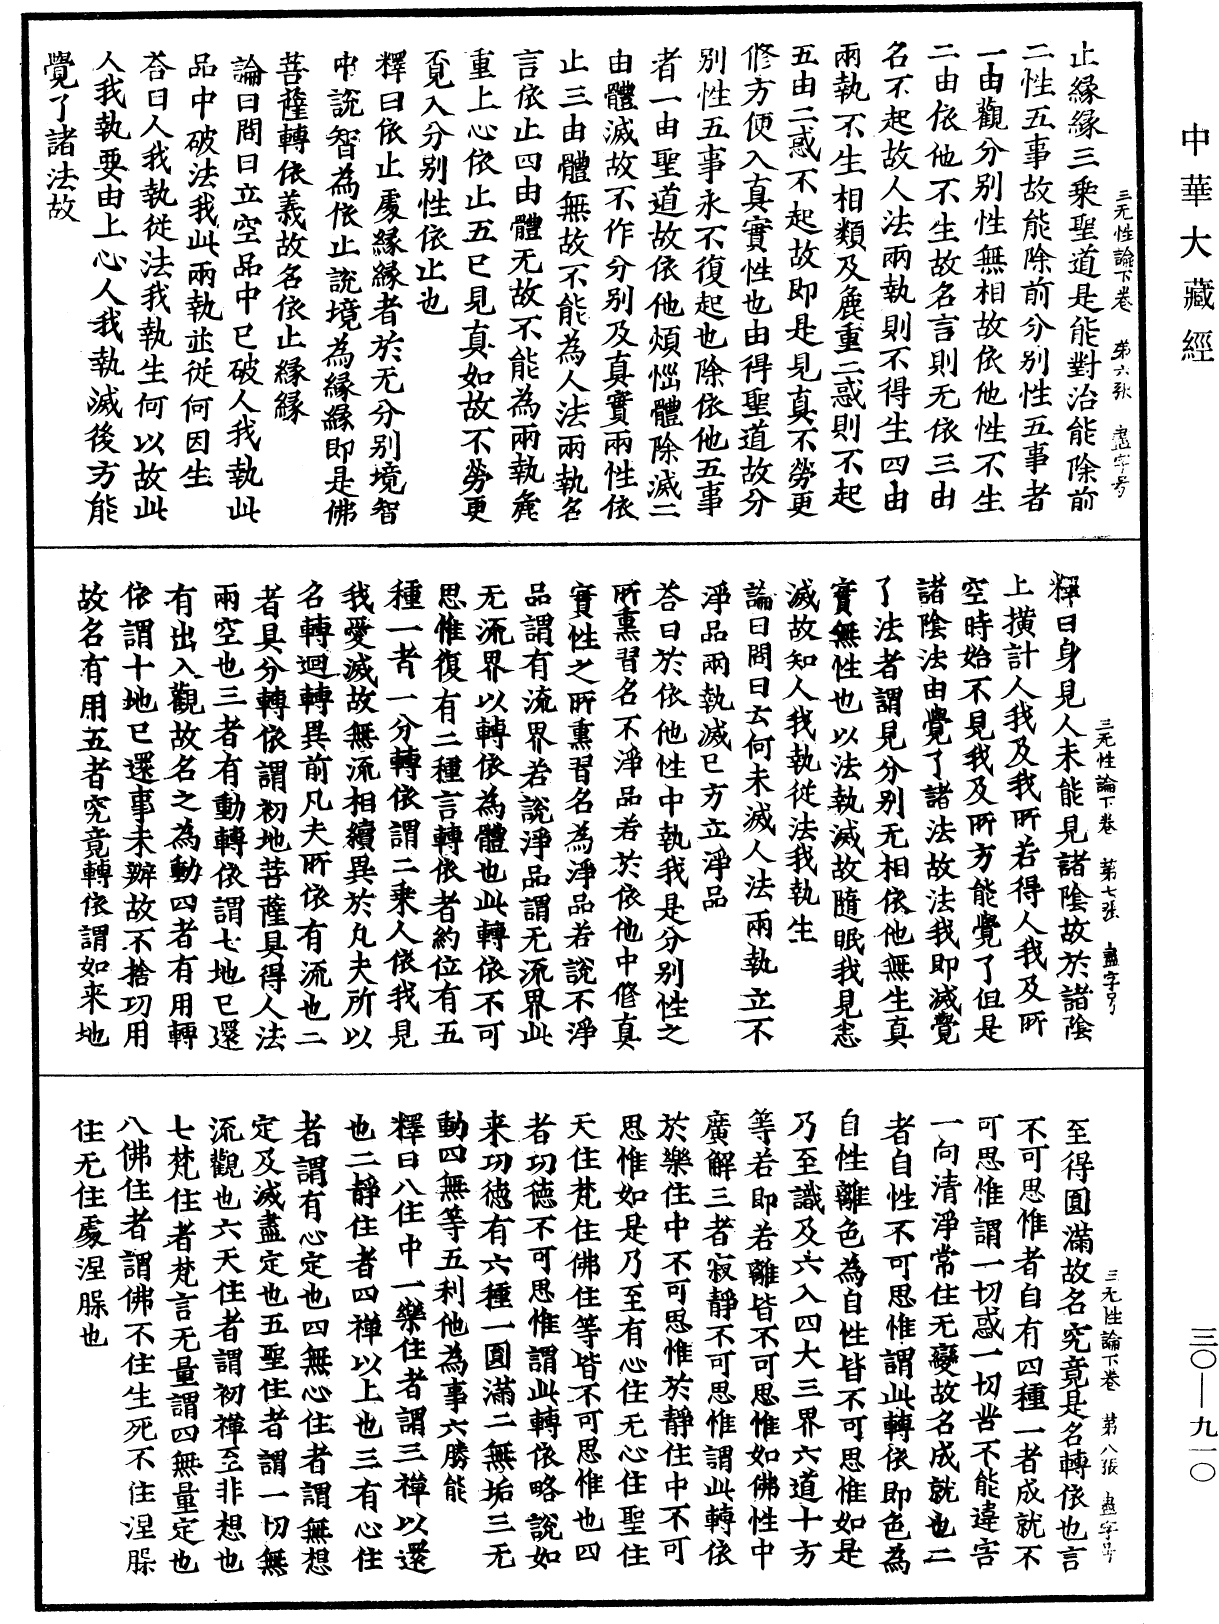 中華大藏經
三〇—九一〇
三无性論下卷 第六張 盡字号
止緣緣三乘聖道是能對治能除前
二性五事故能除前分別性五事者
一由觀分別性無相故依他性不生
二由依他不生故名言則无依三由
名不起故人法兩執則不得生四由
兩執不生相類及麁重二惑則不起
五由二惑不起故即是見真不勞更
修方便入真實性也由得聖道故分
別性五事永不復起也除依他五事
者一由聖道故依他煩惱體除滅二
由體滅故不作分別及真實兩性依
止三由體無故不能為人法兩執名
言依止四由體无故不能為兩執麁
重上心依止五已見真如故不勞更
覓入分別性依止也
釋曰依止處緣緣者於无分別境智
中說智為依止說境為緣緣即是佛
菩薩轉依義故名依止緣緣
論曰問曰立空品中已破人我執此
品中破法我此兩執並從何因生
荅曰人我執從法我執生何以故此
人我執要由上心人我執滅後方能
覺了諸法故
三无性論下卷 第七張 盡字号
釋曰身見人未能見諸陰故於諸陰
上橫計人我及我所若得人我及所
空時始不見我及所方能覺了但是
諸陰法由覺了諸法故法我即滅覺
了法者謂見分別无相依他無生真
實無性也以法執滅故隨眠我見恚
滅故知人我執從法我執生
論曰問曰云何未滅人法兩執立不
淨品兩執滅已方立淨品
荅曰於依他性中執我是分別性之
所熏習名不淨品若於依他中修真
實性之所熏習名為淨品若說不淨
品謂有流界若說淨品謂无流界此
无流界以轉依為體也此轉依不可
思惟復有二種言轉依者約位有五
種一者一分轉依謂二乘人依我見
我愛滅故無流相續異於凡夫所以
名轉迴轉異前凡夫所依有流也二
者具分轉依謂初地菩薩具得人法
兩空也三者有動轉依謂七地已還
有出入觀故名之為動四者有用轉
依謂十地已還事未辦故不捨功用
故名有用五者究竟轉依謂如来地
三无性論下卷 第八張 盡字号
至得圓滿故名究竟是名轉依也言
不可思惟者自有四種一者成就不
可思惟謂一切惑一切苦不能違害
一向清淨常住无變故名成就也二
者自性不可思惟謂此轉依即色為
自性離色為自性皆不可思惟如是
乃至識及六入四大三界六道十方
等若即若離皆不可思惟如佛性中
廣解三者寂靜不可思惟謂此轉依
於樂住中不可思惟於靜住中不可
思惟如是乃至有心住无心住聖住
天住梵住佛住等皆不可思惟也四
者功德不可思惟謂此轉依略說如
来功德有六種一圓滿二無垢三无
動四無等五利他為事六勝能
釋曰八住中一樂住者謂三禪以還
也二靜住者四禪以上也三有心住
者謂有心定也四無心住者謂無想
定及滅盡定也五聖住者謂一切無
流觀也六天住者謂初禪至非想也
七梵住者梵言无量謂四無量定也
八佛住者謂佛不住生死不住涅槃
住无住處涅槃也